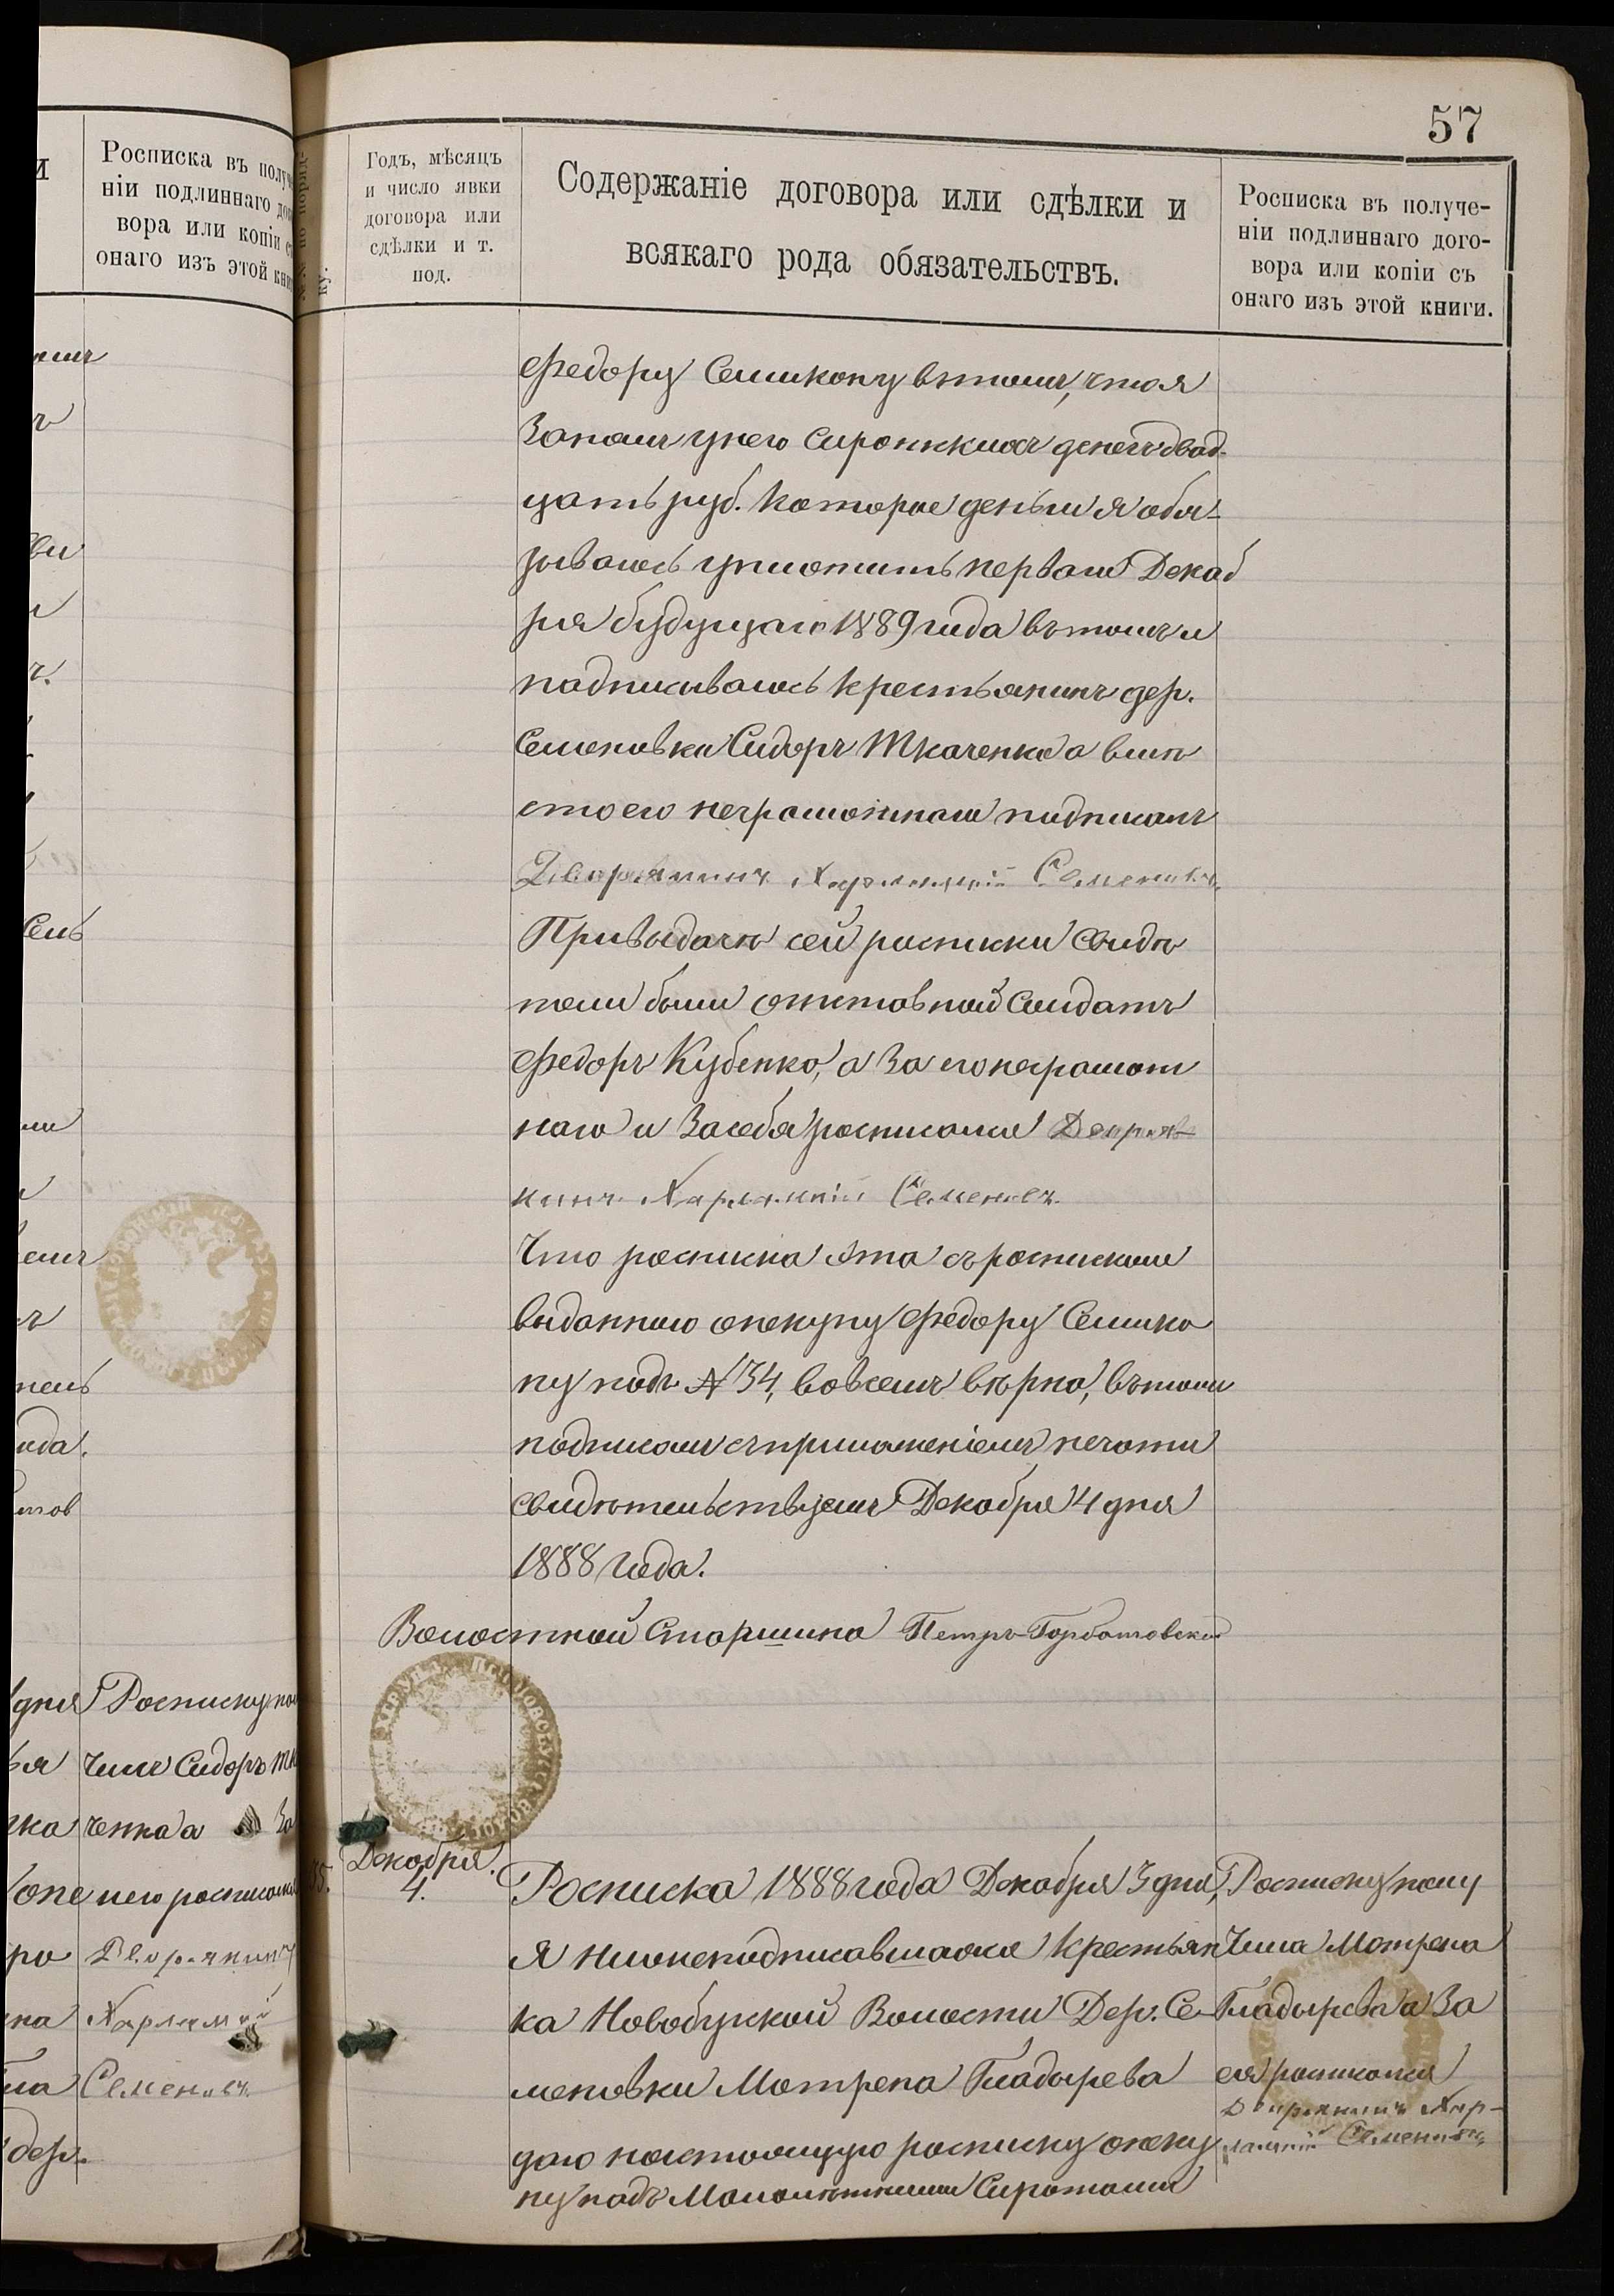 57
Росписка въ получе-
ніи подлиннаго дого-
вора или копіи съ
онаго изъ этой книги.
Годъ, мѣсяцъ
и число явки
договора или
сдѣлки и т.
под.
Содержаніе договора или сдѣлки и
всякаго рода обязательствъ.
Росписка въ получе-
ніи подлиннаго дого-
вора или копіи съ
онаго изъ этой книги.
Федору Семикопу втомъ, что я
Заналъ унего Сиротскихъ денегъ двад-
цать руб. Которые деньги я обя-
зываюсь уплотить первого Декаб
ря будущаго 1889 года въ томъ и
подписываюсь крестьянинъ дер.
Семеновки Сидоръ Ткаченко а вмѣ
сто его неграмотнаго подписалъ
Дворянинъ Харлампій Семеновъ
При выдачѣ сей росписки свидѣ
тели были отставной Солдатъ
Федоръ Кубенко, а За его неграмот
наго и За себя росписался Дворя-
нинъ Харлампій Семеновъ.
Что росписка эта съ роспискою
выданною опекуну Федору Семико
пу подъ № 34, во всемъ вѣрно, въ томъ
подписомъ съ приложеніемъ печати
свидѣтельствуемъ Декабря 4 дня
1888 года.
Волостной Старшина Петръ Горбатовский
дня Росписку пол
чилъ Сидоръ Тка
ченко а За
него росписался
Дворянинъ
Харлампій
Семеновъ
дер.
35.
Декабря.
4.
Росписка 1888 года Декабря 3 дня,
я нижеподписавшаяся крестьян
ка Новобугской Волости Дер. Се-
меновки Мотрена Гладырева
даю настоящую росписку опеку
ну надъ Малолѣтними Сиротами
Росписку полу
чила Мотрена
Гладырева а За
ея росписался
Дворянинъ Хар-
лампій Семеновъ